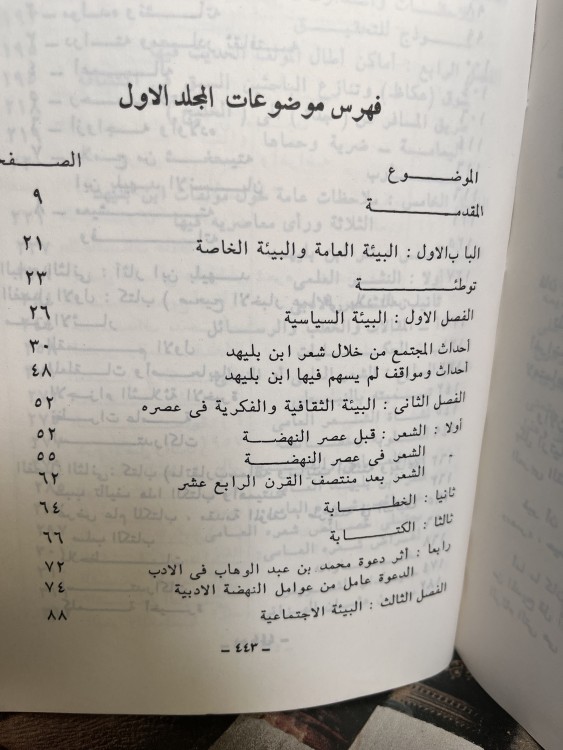 فهرس موضوعات المجلد الاول
الموضـــــوع الصـفحـ
المقدمـــــة ٩
الباب الاول : البيئة العامة والبيئة الخاصة ٢١
توطئـــــة ٢٣
الفصل الاول : البيئة السياسية ٢٦
أحداث المجتمع من خلال شعر ابن بليهد ٣٠
أحداث ومواقف لم يسهم فيها ابن بليهد ٤٨
الفصل الثانى : البيئة الثقافية والفكرية فى عصره ٥٢
أولا : الشعر : قبل عصر النهضـــة ٥٢
الشعر فى عصر النهضـــة ٥٥
الشعر بعد منتصف القرن الرابع عشر ٦٢
ثانيا : الخطـــابة ٦٤
ثالثا : الكتـــابة ٦٦
رابعا : اثر دعوة محمد بن عبد الوهاب فى الادب ٧٢
الدعوة عامل من عوامل النهضة الادبية ٧٤
الفصل الثالث : البيئة الاجتماعية ٨٨
– ٤٤٣ –